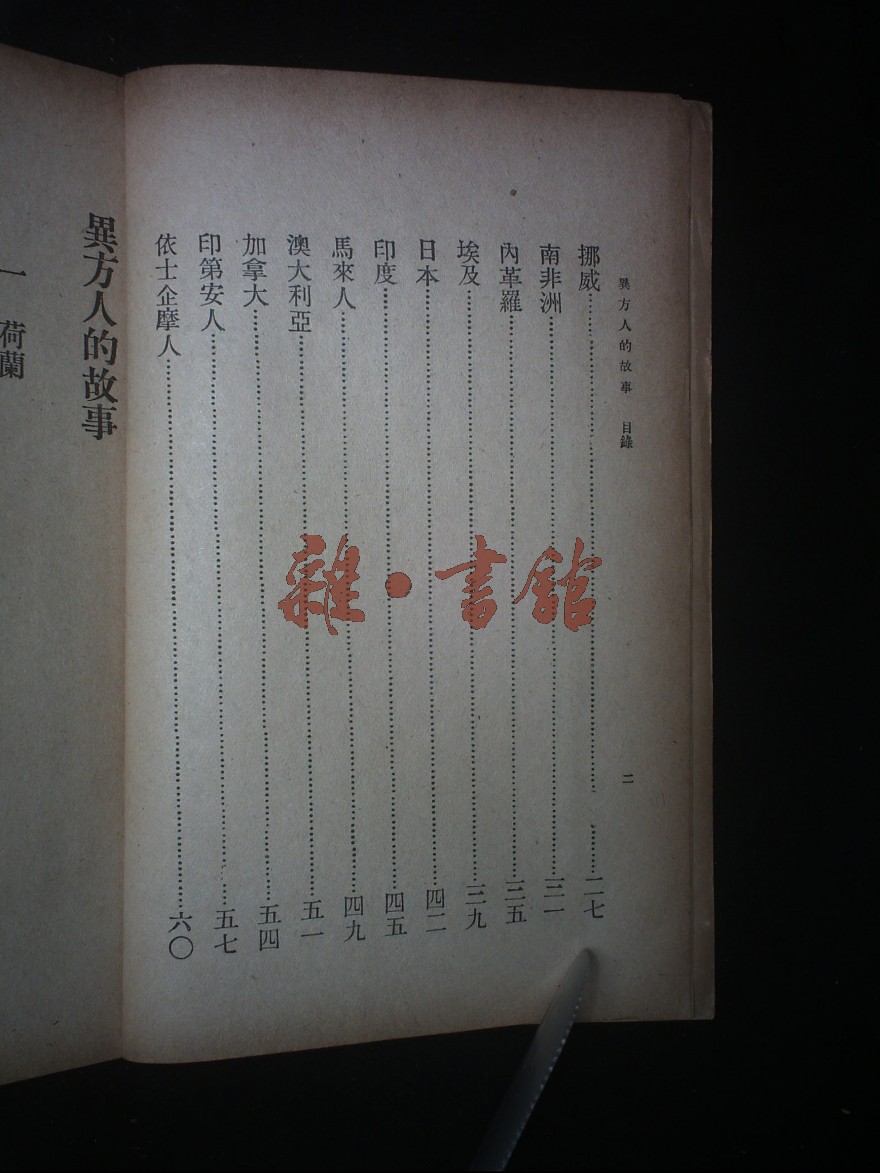 異方人的故事 目錄
二
挪威……二七
南非洲……三一
內革羅……三五
埃及……三九
日本……四二
印度……四五
馬來人……四九
澳大利亞……五一
加拿大……五四
印第安人……五七
依士企摩人……六〇
異方人的故事
一 荷蘭
雜·書館